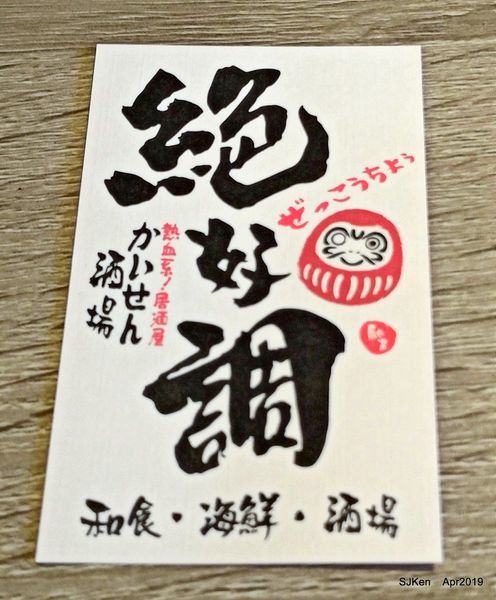 絶好調
ぜっこうちょう
熱血系！居酒屋
かいせん
酒場
和食・海鮮・酒場
SJKen Apr2019